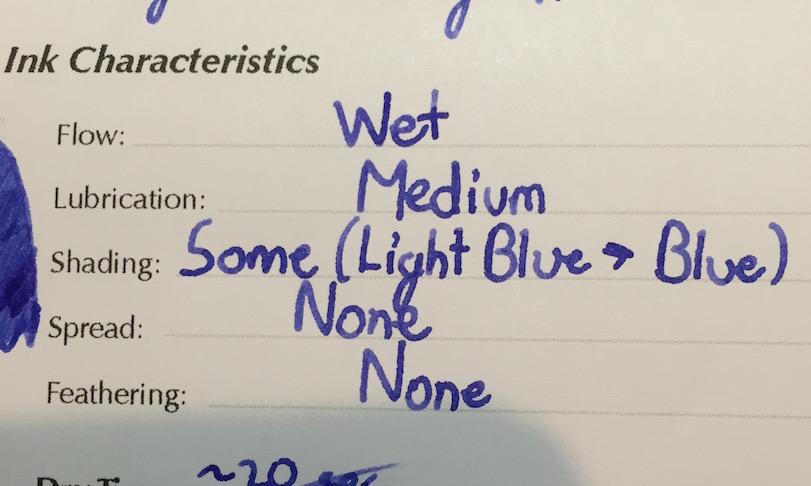 Ink Characteristics
Flow: Wet
Lubrication: Medium
Shading: Some (Light Blue → Blue)
Spread: None
Feathering: None
~20